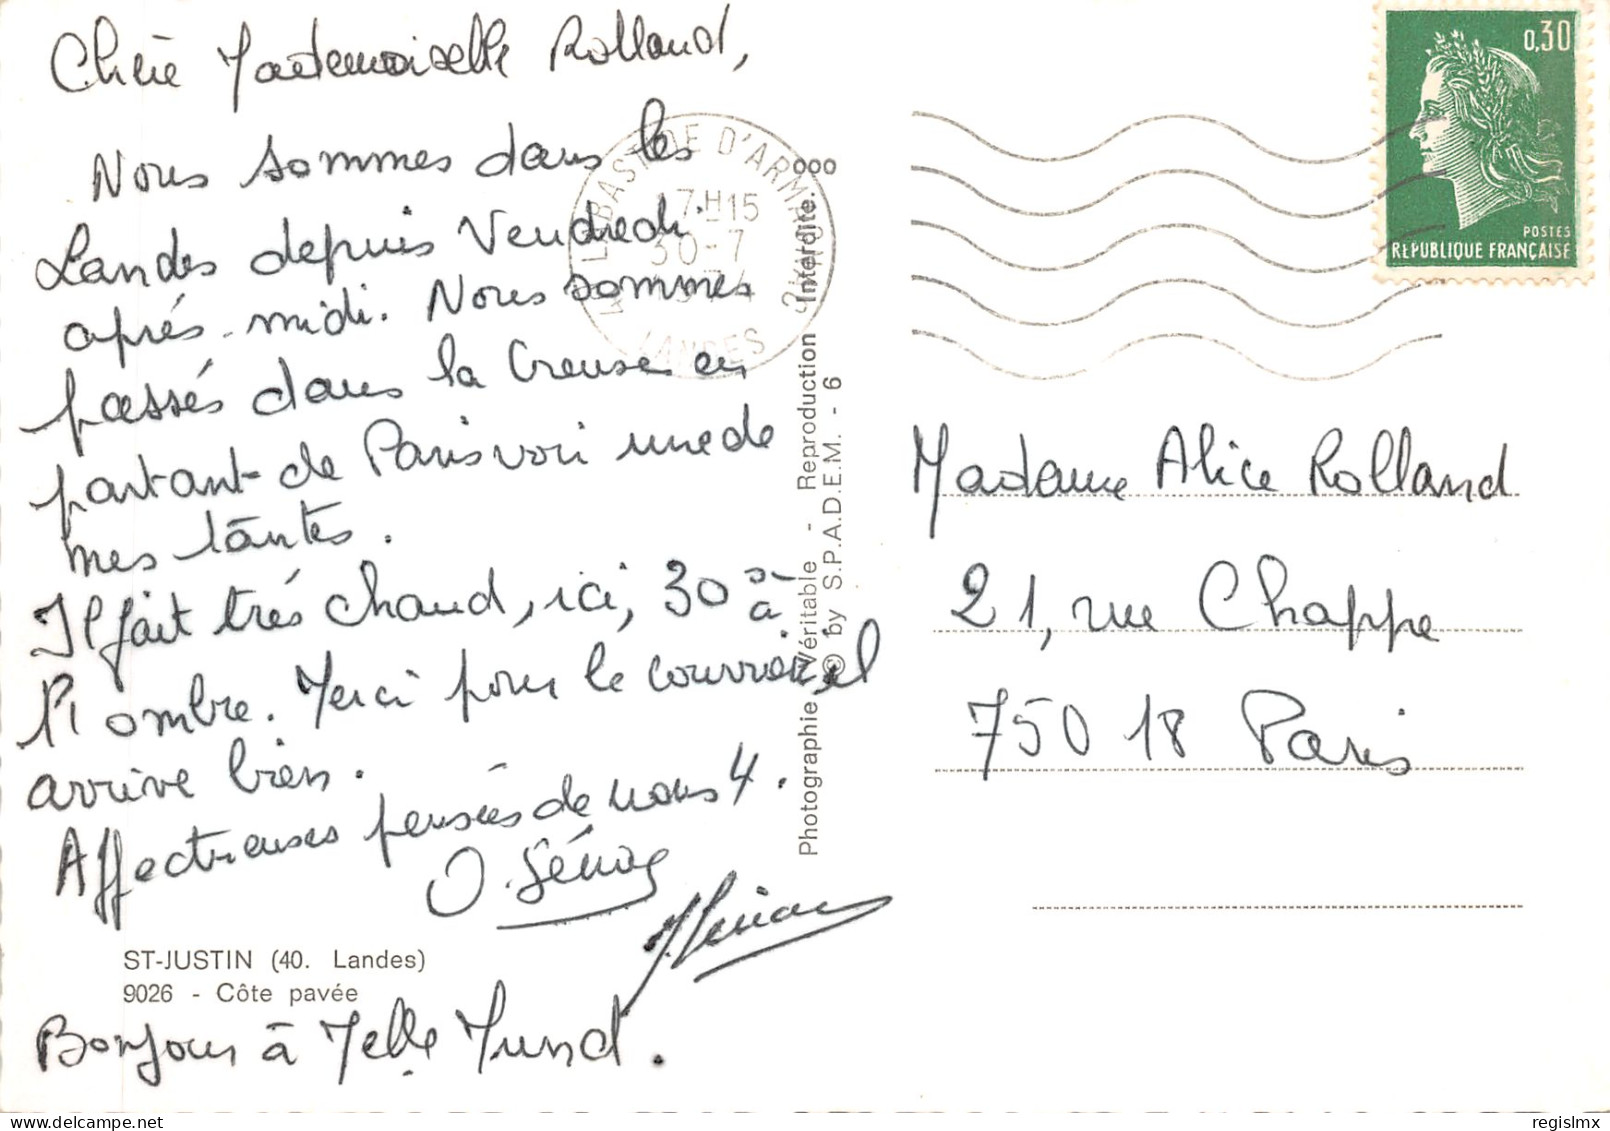 Chère Mademoiselle Rolland,
Nous sommes dans les
Landes depuis Vendredi
après-midi. Nous sommes
passés dans la Creuse en
partant de Paris voir une de
mes tantes.
Il fait très chaud, ici, 30° à
l'ombre. Merci pour le courrier, il
arrive bien.
Affectueuses pensées de nous 4.
ST-JUSTIN (40. Landes)
9026 - Côte pavée
Bonjour à Melle Mund.
BASTIDE D'ARMAGNAC
17H15
30-7
LANDES
Photographie Véritable - Reproduction Interdite.
© by S.P.A.D.E.M. - 6
0,30
POSTES
RÉPUBLIQUE FRANÇAISE
Madame Alice Rolland
21, rue Chappe
75018 Paris
regislmx